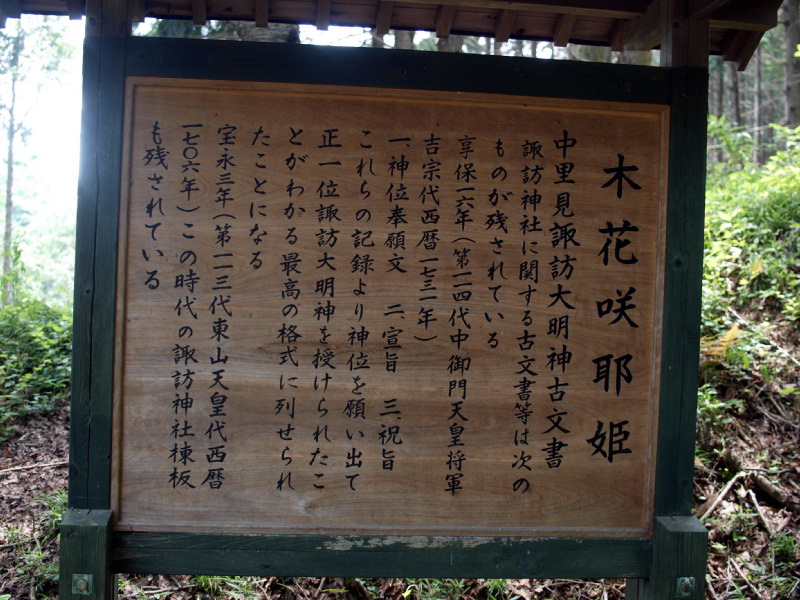 木花咲耶姫
中里見諏訪大明神古文書
諏訪神社に関する古文書等は次の
ものが残されている
享保一六年（第一一四代中御門天皇将軍
吉宗代西暦一七三一年）
一、神位奉願文　二、宣旨　三、祝旨
これらの記録より神位を願い出て
正一位諏訪大明神を授けられたこ
とがわかる最高の格式に列せられ
たことになる
宝永三年（第一一三代東山天皇代西暦
一七〇六年）この時代の諏訪神社棟板
も残されている